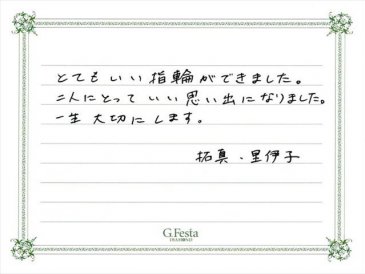 とてもいい指輪ができました。
二人にとっていい思い出になりました。
一生大切にします。
拓真・里伊子
G.Festa
DIAMOND